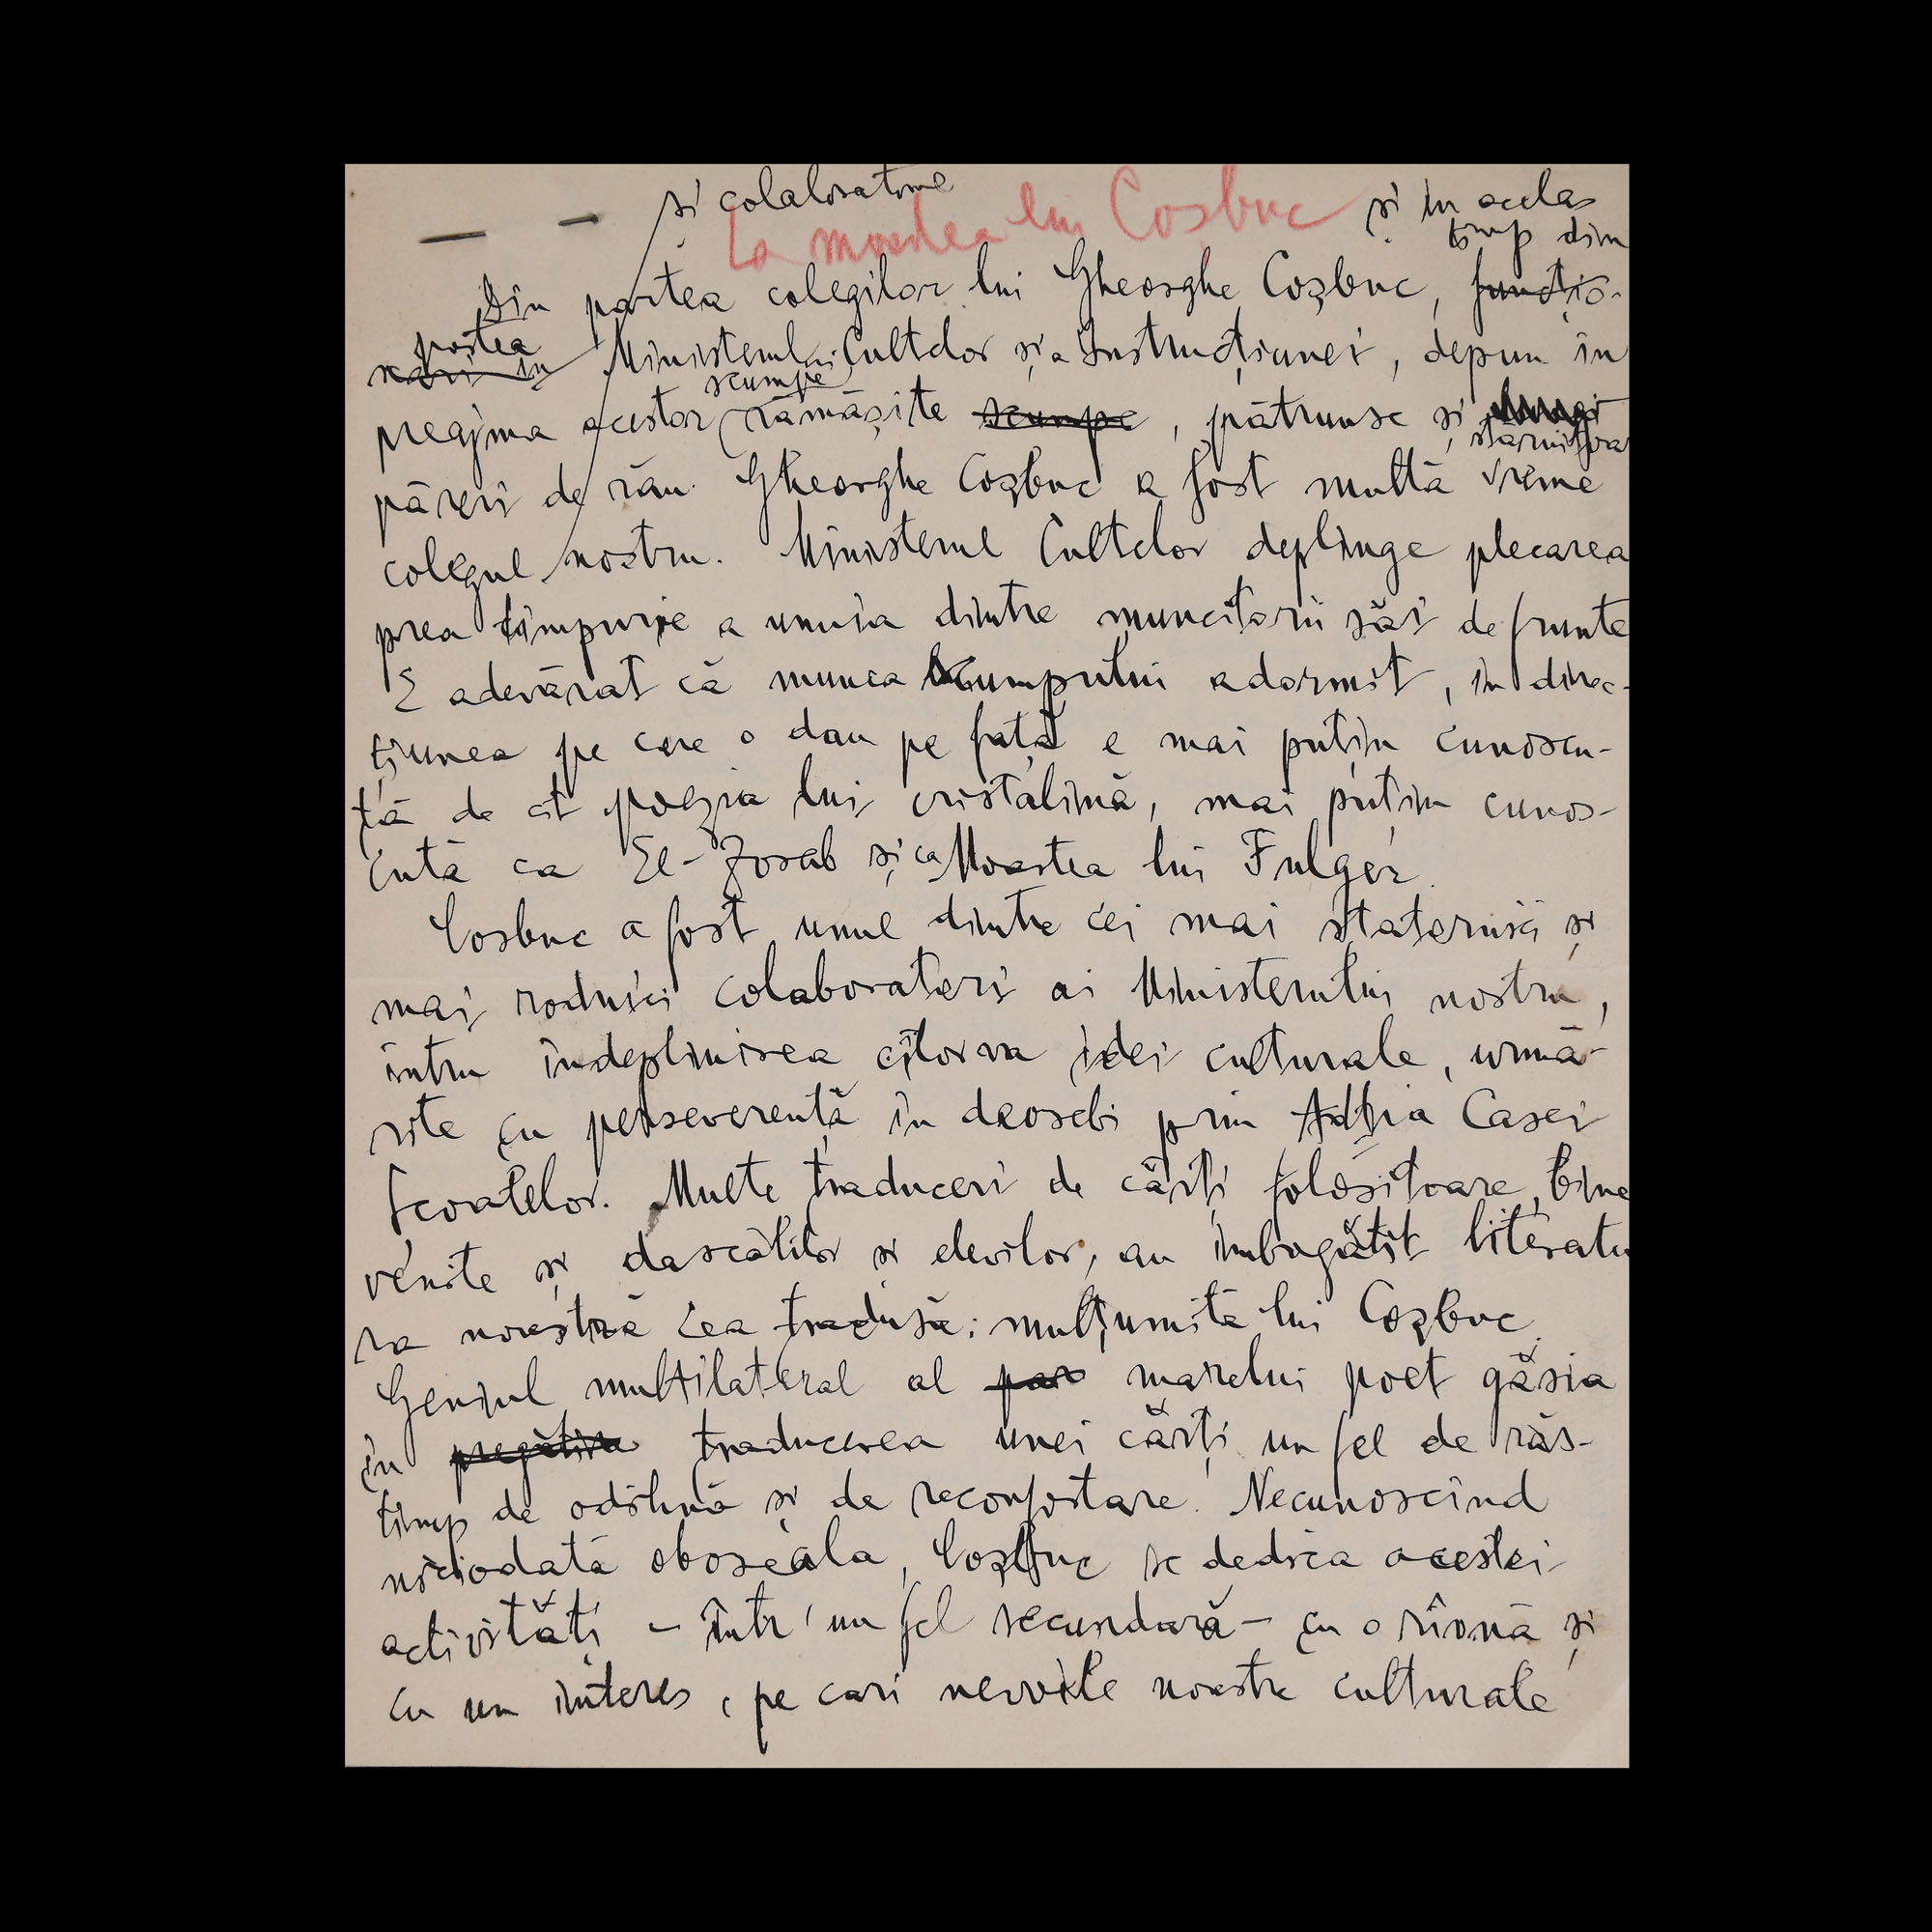 și colaboratorul
La moartea lui Coșbuc
și în acelas
timp din
Din partea colegilor lui Gheorghe Coșbuc, funcțio-
partea
nari in Ministerului Cultelor și a Instrucțiunei, depun în
scumpe
preajma acestor rămășite scumpe, pătrunse și
stăruitoa
păreri de rău. Gheorghe Coșbuc a fost multă vreme
colegul nostru. Ministerul Cultelor deplinge plecarea
prea timpurie a unuia dintre muncitorii săi de frunte
E adevărat că munca scumpului adormit, în direc-
țiunea pe care o dau pe față e mai puțin cunoscu-
tă de cît poezia lui cristalină, mai puțin cunos-
cută ca El-Zorab și ca Moartea lui Fulger.
Cosbuc a fost unul dintre cei mai statornici și
mai rodnici colaboratori ai Ministerului nostru,
intru îndeplinirea cîtorva idei culturale, urmă-
rite cu perseverență în deosebi prin Adția Casei
Școalelor. Multe traduceri de cărți folositoare, bine
venite și dascălilor și elevilor, au îmbogățit literatu
ra noastră cea tradusă: mulțumită lui Coșbuc.
Geniul multilateral al par marelui poet găsia
în pregătirea traducerea unei cărți un fel de răs-
timp de odihnă și de reconfortare. Necunoscînd
niciodată oboseala, Coșbuc se dedica acestei
activități – într'un fel secundară – cu o rîvnă și
cu un interes, pe cari nevoile noastre culturale